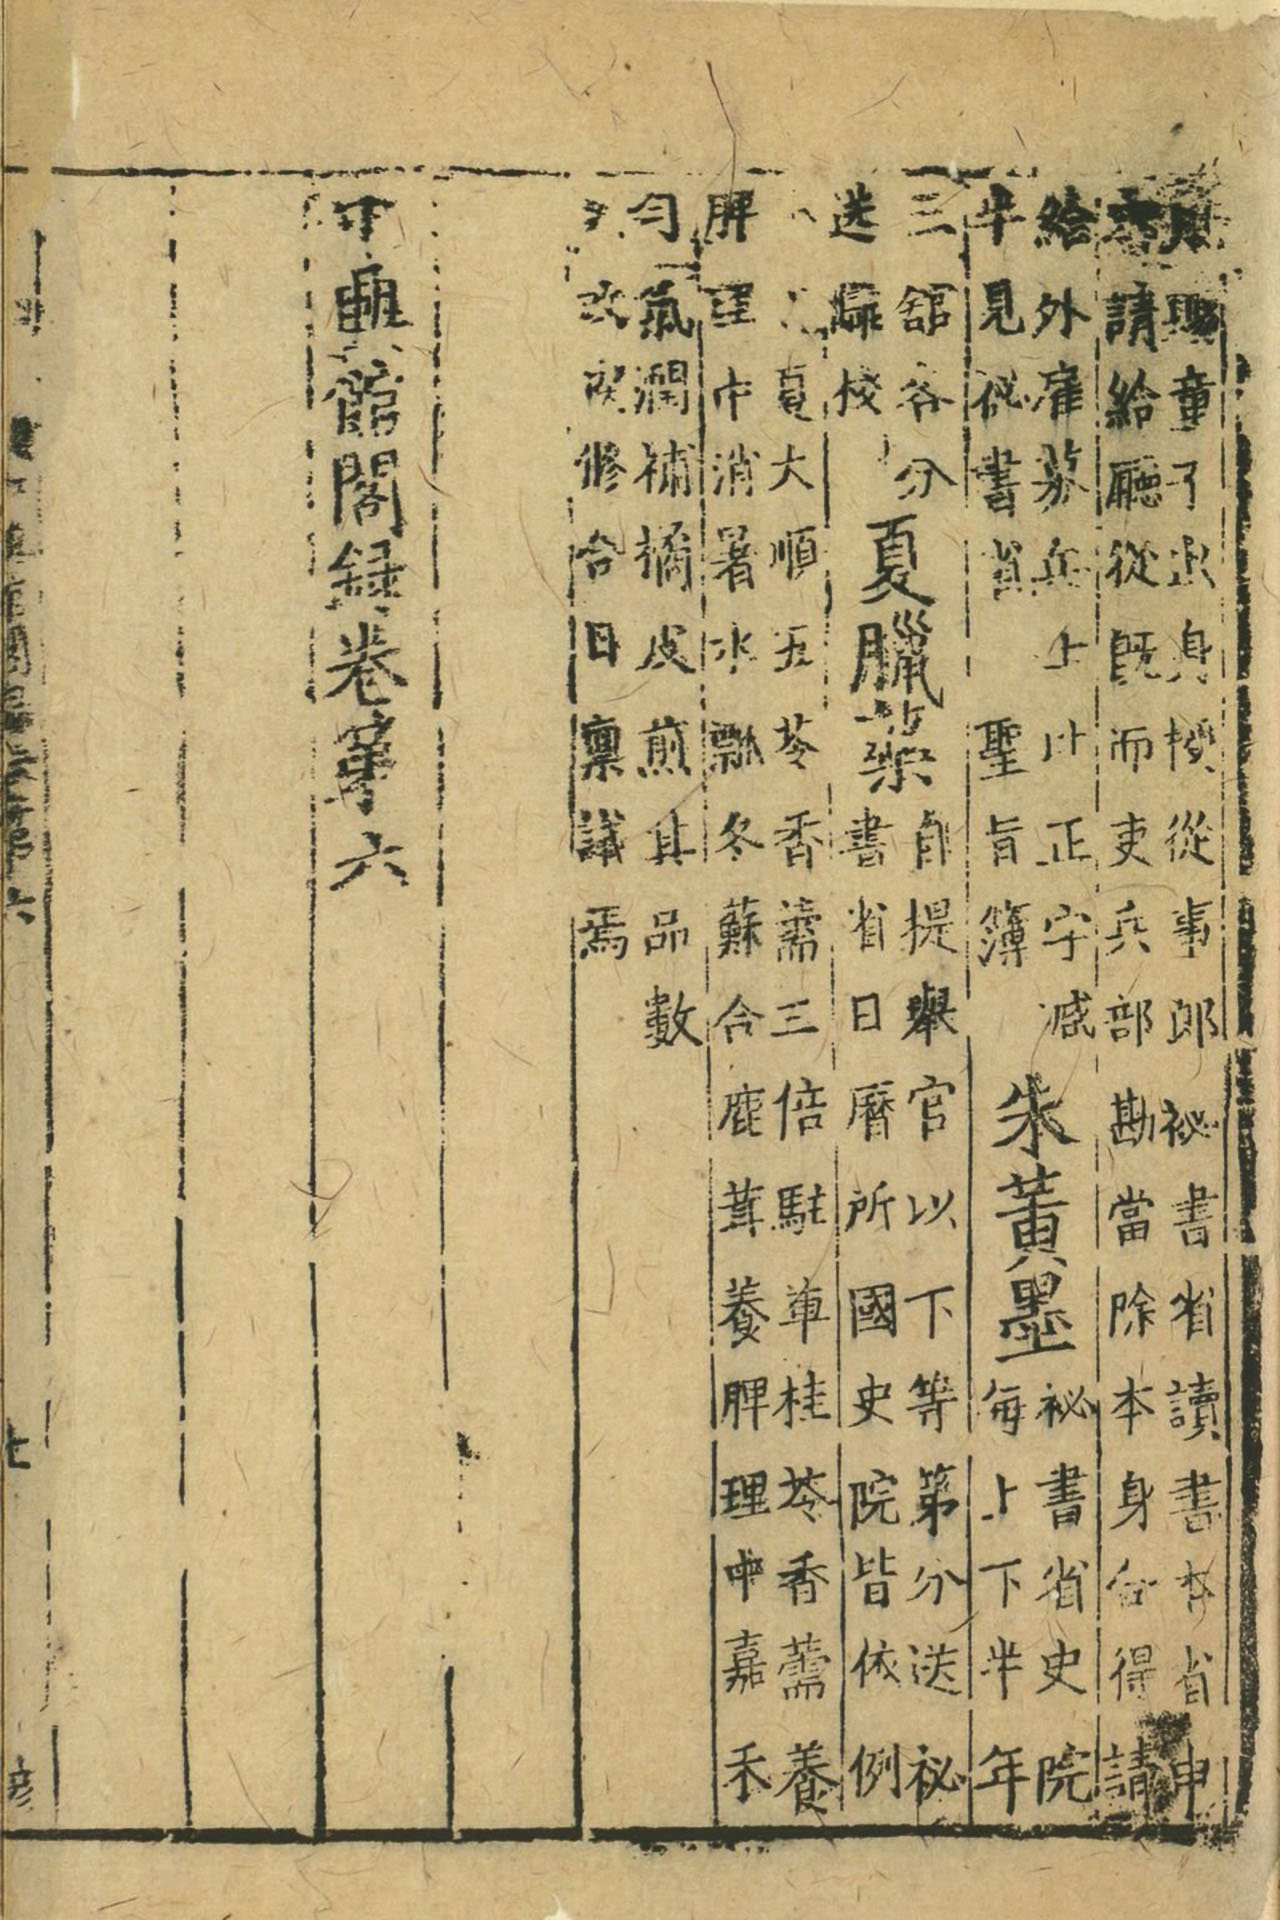 童子出身授從事郎祕書省讀書本省申
請給廳從既而吏兵部勘當除本身合得請
給外雇募兵士止正字減
半見祕書省 聖旨簿
朱黃墨
祕書省史院
每上下半年
三舘各分
送歸校
夏臘藥
自提舉官以下等第分送祕
書省日曆所國史院皆依例
夏大順五苓香薷三倍駐車桂苓香薷養
脾理中消暑水瓢冬蘇合鹿茸養脾理中嘉禾
勻氣潤補橘皮煎其品數
改更修合日稟議焉
中興館閣録卷第六